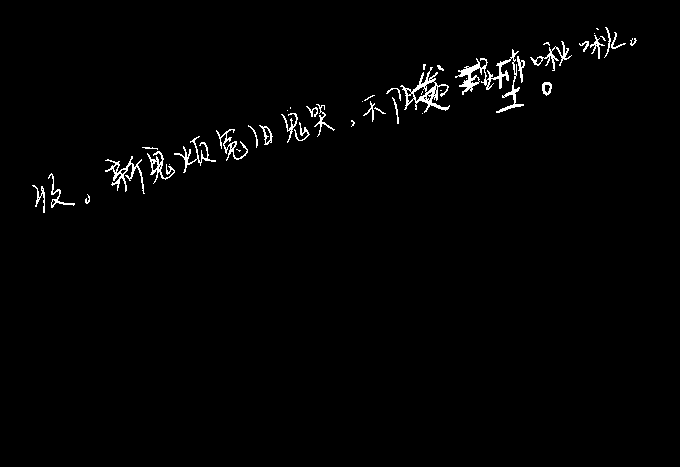 收。新鬼烦冤旧鬼哭,天阴 啾啾。